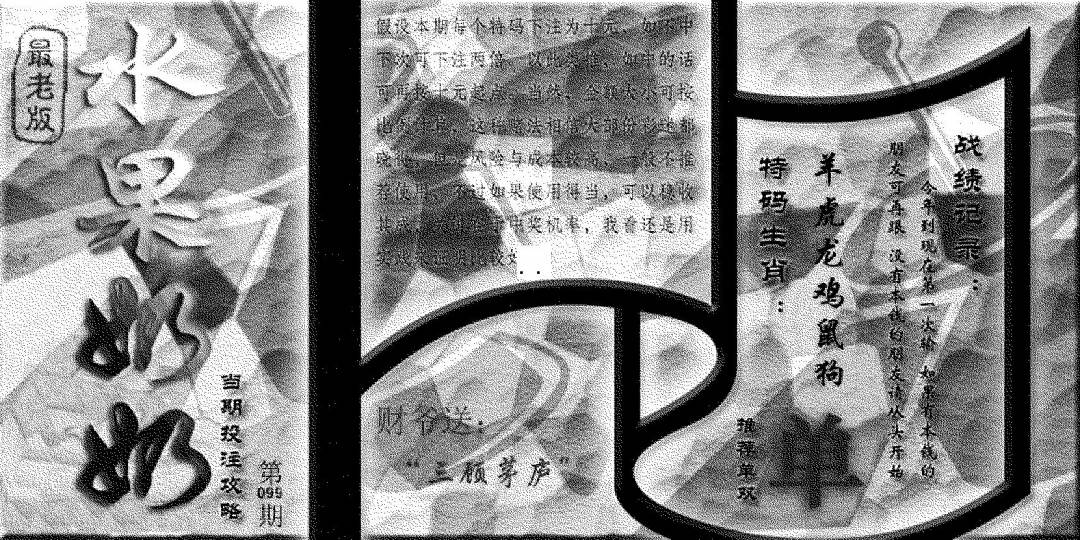 最老版
水果奶奶
当期投注攻略
第099期
假设本期每个特码下注为十元，如不中
下次可下注两倍，以此类推，如中的话
可再按十元起点，当然，金额大小可按
这种赌法相信大部份彩迷都
风险与成本较高，一般不推
荐使用，不过如果使用得当，可以稳收
中奖机率，我看还是用
财爷送：
“三顾茅庐”
战绩记录：
今年到现在第一次输 如果有本钱的
朋友可再跟 没有本钱的朋友请从头开始
羊虎龙鸡鼠狗
特码生肖：
推荐单双
单